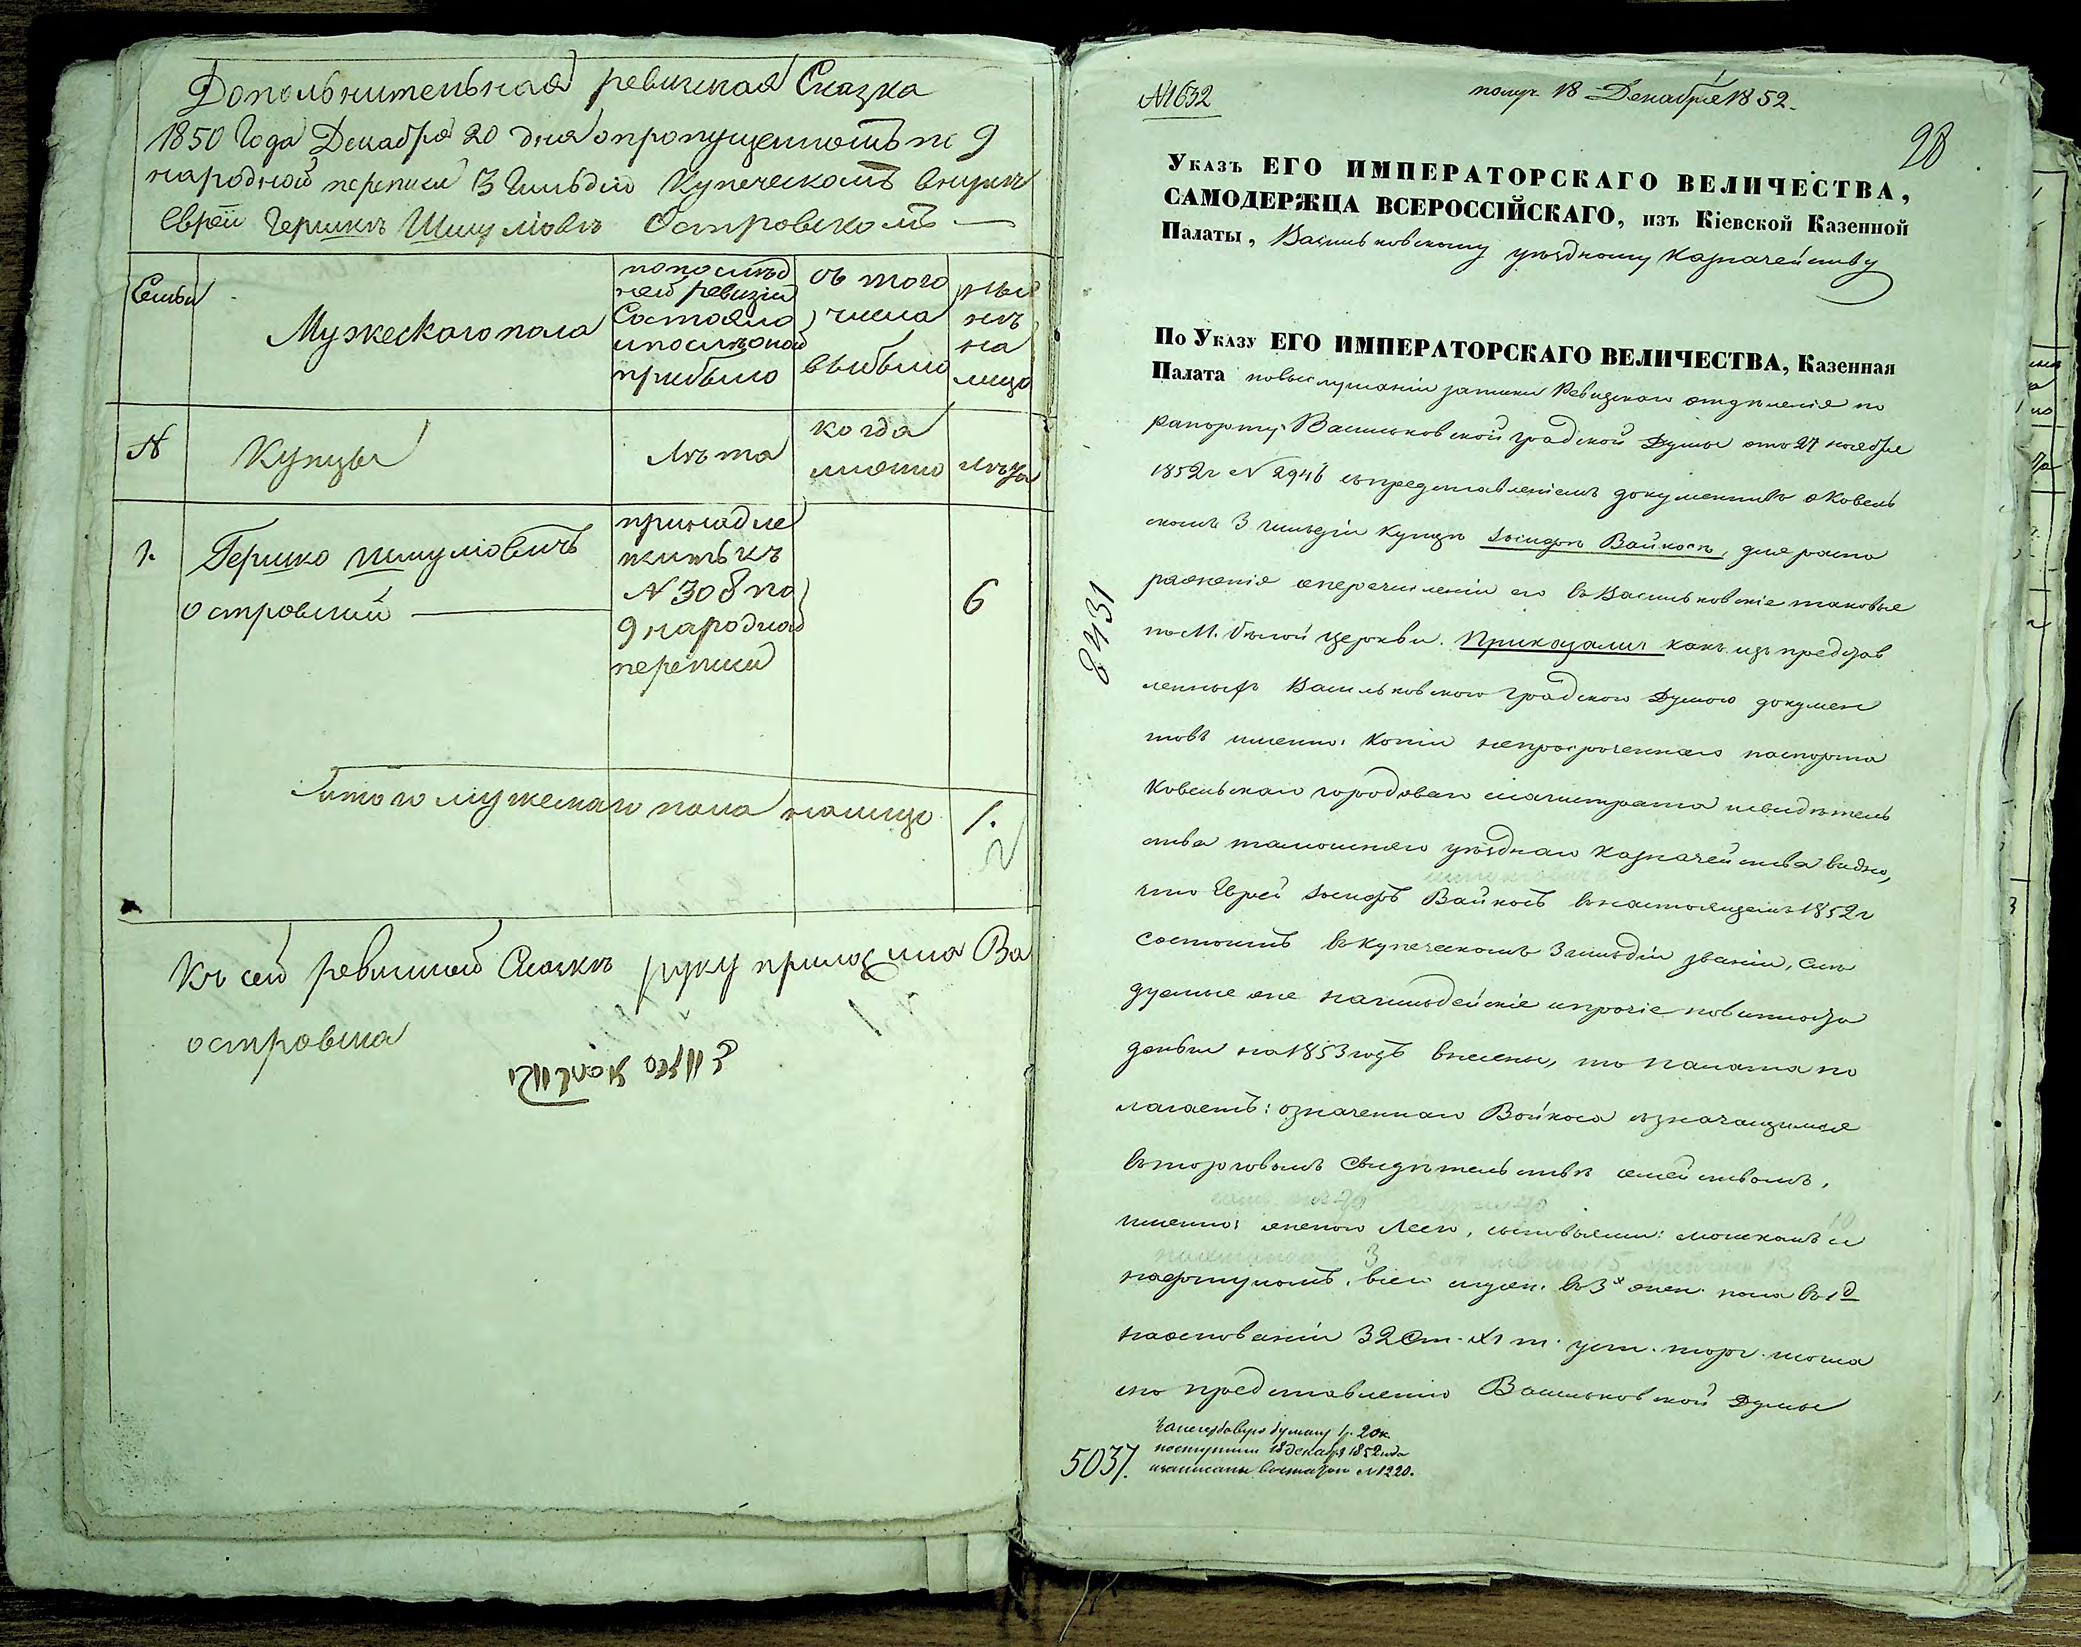 Дополнительная ревизская Сказка
1850 Года Декабря 20 дня о пропущенномъ по 9
народной переписи 3 Гильдіи Купеческомъ внукѣ
Еврей Гершкѣ Шмуліовѣ Островскомъ —
Семьи
Мужескаго пола
по послѣд
ней ревизіи
Состояло
и послѣ оной
прибыло
съ того
числа
выбыло
нынѣ
на
лицо
№
Купцы
Лѣта
когда
именно
лѣта
1.
Гершко Шмуліовичъ
островский
принадле
житъ къ
№ 308 по
9 народной
переписи
6
Итого мужескаго пола налицо 1.
Къ сей ревизской Сказкѣ руку приложила Ва
островска
№ 1632
получ. 18 Декабря 1852.
28
Указъ ЕГО ИМПЕРАТОРСКАГО ВЕЛИЧЕСТВА,
САМОДЕРЖЦА ВСЕРОССІЙСКАГО, изъ Кіевской Казенной
Палаты, Васильковскому уѣздному Казначейству
По Указу ЕГО ИМПЕРАТОРСКАГО ВЕЛИЧЕСТВА, Казенная
Палата по выслушаніи записки Ревизскаго отдѣленія по
рапорту Васильковской градской Думы отъ 27 ноября
1852 г № 2946 съ представленіемъ документовъ о Ковель
скомъ 3 гильдіи купцѣ Вайносѣ, для распо
ряженія о перечисленіи его въ Васильковскіе таковые
по М. бѣлой церкви. Приказали: какъ изъ представ
ленныхъ Васильковскою градскою Думою докумен
товъ именно: копіи непросроченнаго паспорта
Ковельскаго городоваго магистрата и свидѣтель
ства тамошняго уѣзднаго Казначейства видно,
что Еврей Вайносъ въ настоящемъ 1852 г
состоитъ въ купеческомъ 3 гильдіи званіи, слѣ
дуемые же на гильдейскіе и прочіе повинности
деньги на 1853 годъ внесены, то палата по
лагаетъ: означеннаго Вайноса съ значащимся
въ торговомъ свидѣтельствѣ семействомъ,
именно: женою Леею, сыновьями: Мошкомъ и
Нафтуломъ, всего муж. въ 3х жен. пола въ 1 д
на основаніи 32 ст. XI т. уст. торг. согла
сно представленію Васильковской Думы
8431
5037.
За гербовую бумагу 1 р. 20 к.
поступили 18 декабря 1852 года
и записаны въ статью № 1220.